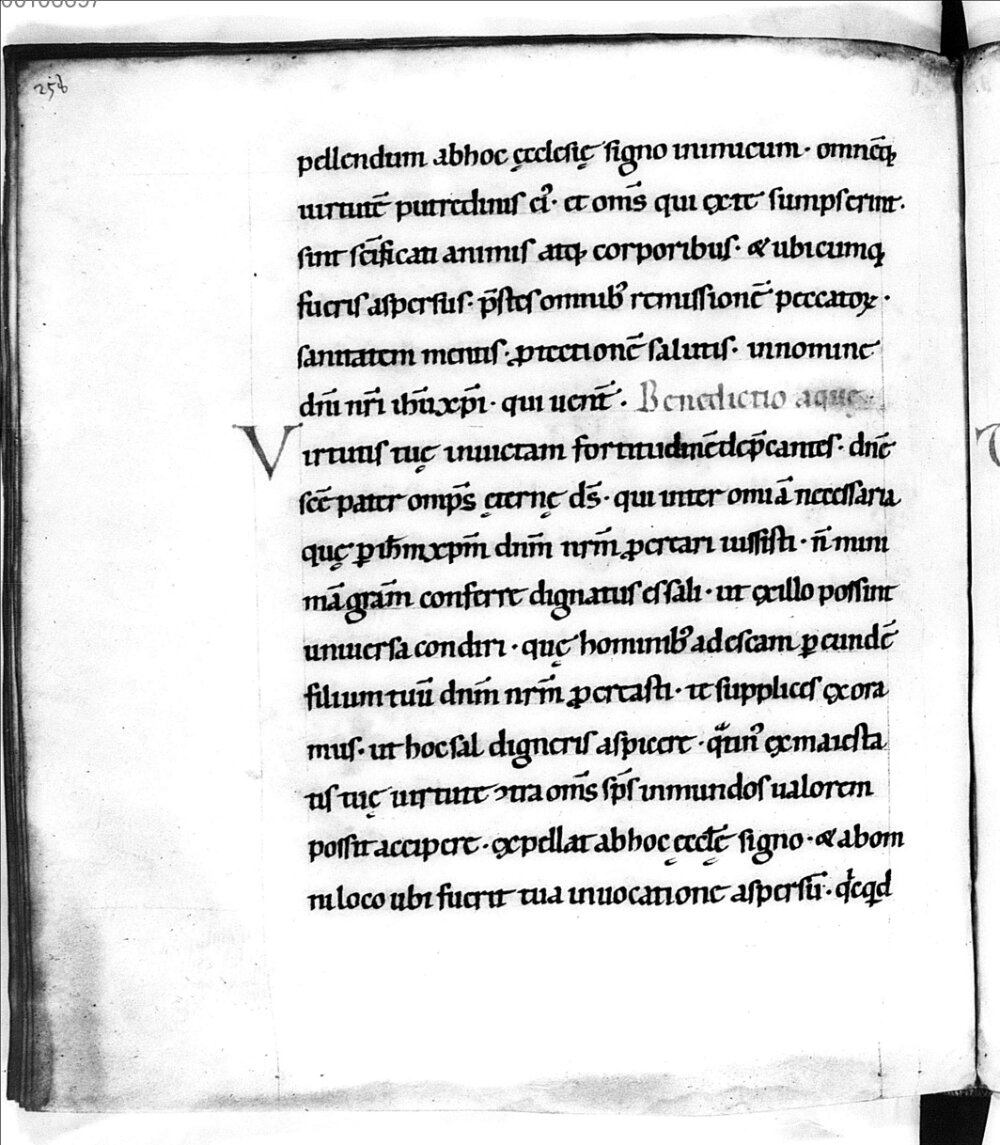 258
pellendum abhoc ęcclesię signo inimicum· omnēq;
uirtutē putredinis ei᾽· et om̄s qui ex te sumpserint·
sint sc̄ificati animis atq; corporibus· & ubicumq;
fueris aspersus· p̄stes omnib᾽ remissionē peccatoꝝ·
sanitatem mentis· ꝓtectionē salutis· innomine
dn̄i nr̄i ih̄u xp̄i· qui uent̄· Benedictio aquę
Virtutis tuę inuictam fortitudinē dep̄cantes· dn̄e
sc̄e pater omp̄s ęternę ds̄· qui inter omīa necessaria
quę ꝑ ih̄m xp̄m dn̄m nr̄m ꝓcreari iussisti· n̄ mini
mā gr̄am conferre dignatus es sali· ut ęx illo possint
uniuersa condiri· quę hominib᾽ ad escam ꝑ eundē
filium tuū dn̄m nr̄m ꝓcreasti· te supplices ęxora
mus· ut hoc sal digneris aspicere· q̄tin᾽ ęx maiesta
tis tuę uirtute ↄtra om̄s sp̄s inmundos ualorem
possit accipere· ęxpellat ab hoc ęccl̄ę signo· & ab om
ni loco ubi fuerit tua inuocatione aspersū·